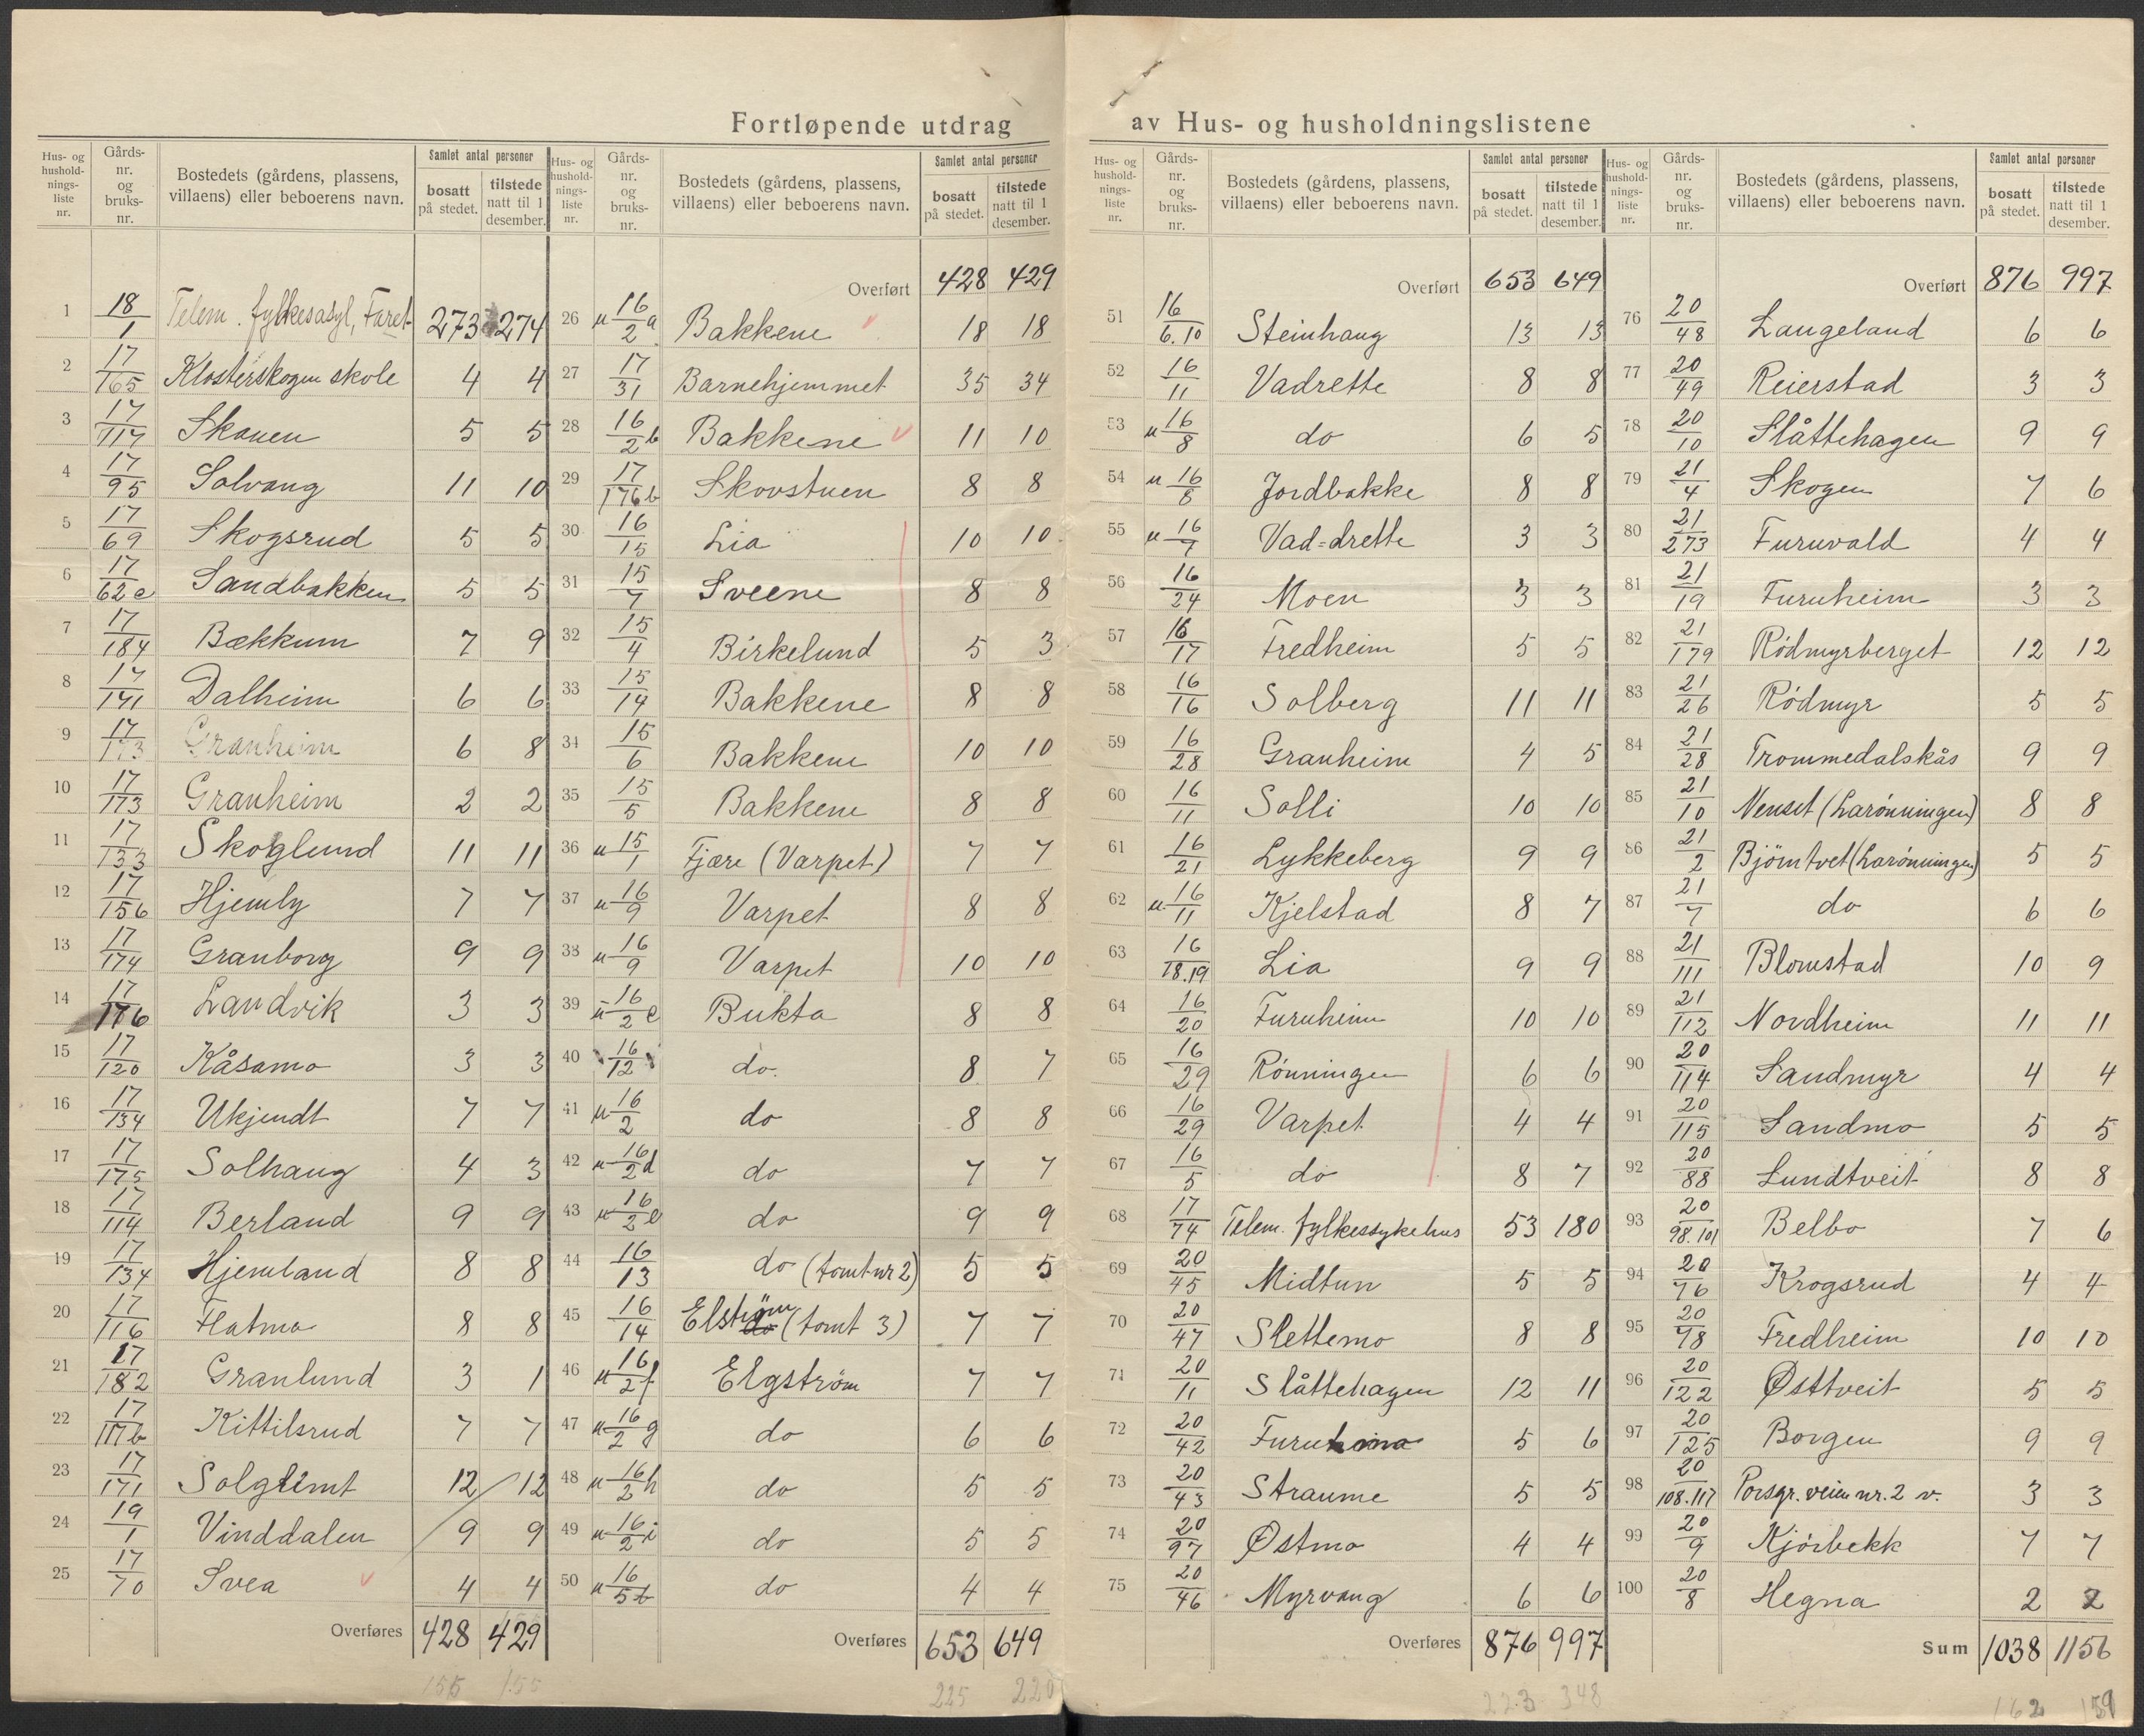 Fortløpende utdrag av Hus- og husholdningslistene
Hus- og hushold- nings- liste nr. | Gårds- nr. og bruks- nr. | Bostedets (gårdens, plassens, villaens) eller beboerens navn. | Samlet antal personer bosatt på stedet. | tilstede natt til 1 desember.
1 18/1 Telem. fylkesasyl, Faret 273 274
2 17/165 Klosterskogen skole 4 4
3 17/117 Skauen 5 5
4 17/95 Solvang 11 10
5 17/69 Skogsrud 5 5
6 17/62 Sandbakken 5 5
7 17/184 Bækkum 7 9
8 17/141 Dalheim 6 6
9 17/173 Granheim 6 8
10 17/173 Granheim 2 2
11 17/133 Skoglund 11 11
12 17/156 Hjemly 7 7
13 17/174 Granborg 9 9
14 17/176 Landvik 3 3
15 17/120 Kåsamo 3 3
16 17/134 Ukjendt 7 7
17 17/175 Solhaug 4 3
18 17/114 Berland 9 9
19 17/134 Hjemland 8 8
20 17/116 Flatmo 8 8
21 17/182 Granlund 3 1
22 17/117b Kittilsrud 7 7
23 17/171 Solglimt 12 12
24 19/1 Vinddalen 9 9
25 17/70 Svea 4 4
Overføres 428 429
155 155
Hus- og hushold- nings- liste nr. | Gårds- nr. og bruks- nr. | Bostedets (gårdens, plassens, villaens) eller beboerens navn. | Samlet antal personer bosatt på stedet. | tilstede natt til 1 desember.
Overført 428 429
26 u 16/2 a Bakkene 18 18
27 17/31 Barnehjemmet 35 34
28 16/2 b Bakkene 11 10
29 17/176 b Skovstuen 8 8
30 16/15 Lia 10 10
31 15/7 Sveene 8 8
32 15/4 Birkelund 5 3
33 15/14 Bakkene 8 8
34 15/6 Bakkene 10 10
35 15/5 Bakkene 8 8
36 u 15/1 Fjære (Varpet) 7 7
37 u 16/9 Varpet 8 8
38 u 16/9 Varpet 10 10
39 u 16/2 c Bukta 8 8
40 16/12 do. 8 7
41 u 16/2 do 8 8
42 u 16/2 d do 7 7
43 u 16/2 e do 9 9
44 16/13 do (tomt nr 2) 5 5
45 16/14 Elstrøm (tomt 3) 7 7
46 u 16/2 f Elgstrøm 7 7
47 u 16/2 g do 6 6
48 u 16/2 h do 5 5
49 u 16/2 i do 5 5
50 u 16/5 do 4 4
Overføres 653 649
225 220
Hus- og hushold- nings- liste nr. | Gårds- nr. og bruks- nr. | Bostedets (gårdens, plassens, villaens) eller beboerens navn. | Samlet antal personer bosatt på stedet. | tilstede natt til 1 desember.
Overført 653 649
51 16/6.10 Steinhaug 13 13
52 16/11 Vadrette 8 8
53 u 16/8 do 6 5
54 u 16/8 Jordbakke 8 8
55 u 16/7 Vad=drette 3 3
56 16/24 Moen 3 3
57 16/17 Fredheim 5 5
58 16/16 Solberg 11 11
59 16/28 Granheim 4 5
60 16/11 Solli 10 10
61 16/21 Lykkeberg 9 9
62 u 16/11 Kjelstad 8 7
63 16/18.19 Lia 9 9
64 16/20 Furuheim 10 10
65 16/29 Rønningen 6 6
66 16/29 Varpet 4 4
67 16/5 do 8 7
68 17/74 Telem. fylkessykehus 53 180
69 20/45 Midtun 5 5
70 20/47 Slettemo 8 8
71 20/11 Slåttehagen 12 11
72 20/42 5 6
73 20/43 Straume 5 5
74 20/97 Østmo 4 4
75 20/46 Myrvang 6 6
Overføres 876 997
223 348
Hus- og hushold- nings- liste nr. | Gårds- nr. og bruks- nr. | Bostedets (gårdens, plassens, villaens) eller beboerens navn. | Samlet antal personer bosatt på stedet. | tilstede natt til 1 desember.
Overført 876 997
76 20/48 Langeland 6 6
77 20/49 Reierstad 3 3
78 20/10 Slåttehagen 9 9
79 21/4 Skogen 7 6
80 21/273 Furuvald 4 4
81 21/19 Furuheim 3 3
82 21/179 Rødmyrberget 12 12
83 21/26 Rødmyr 5 5
84 21/28 Trommedalskås 9 9
85 21/10 Nenset (Larønningen) 8 8
86 21/2 Bjørntvet (Larønningen) 5 5
87 21/7 do 6 6
88 21/111 Blomstad 10 9
89 21/112 Nordheim 11 11
90 20/114 Sandmyr 4 4
91 20/115 Sandmo 5 5
92 20/88 Lundtveit 8 8
93 20/98.101 Belbo 7 6
94 20/76 Krogsrud 4 4
95 20/78 Fredheim 10 10
96 20/122 Østtveit 5 5
97 20/125 Borgen 9 9
98 20/108.117 Porsgr. veien nr. 2 v. 3 3
99 20/9 Kjørbekk 7 7
100 20/8 Hegna 2 2
Sum 1038 1156
162 159